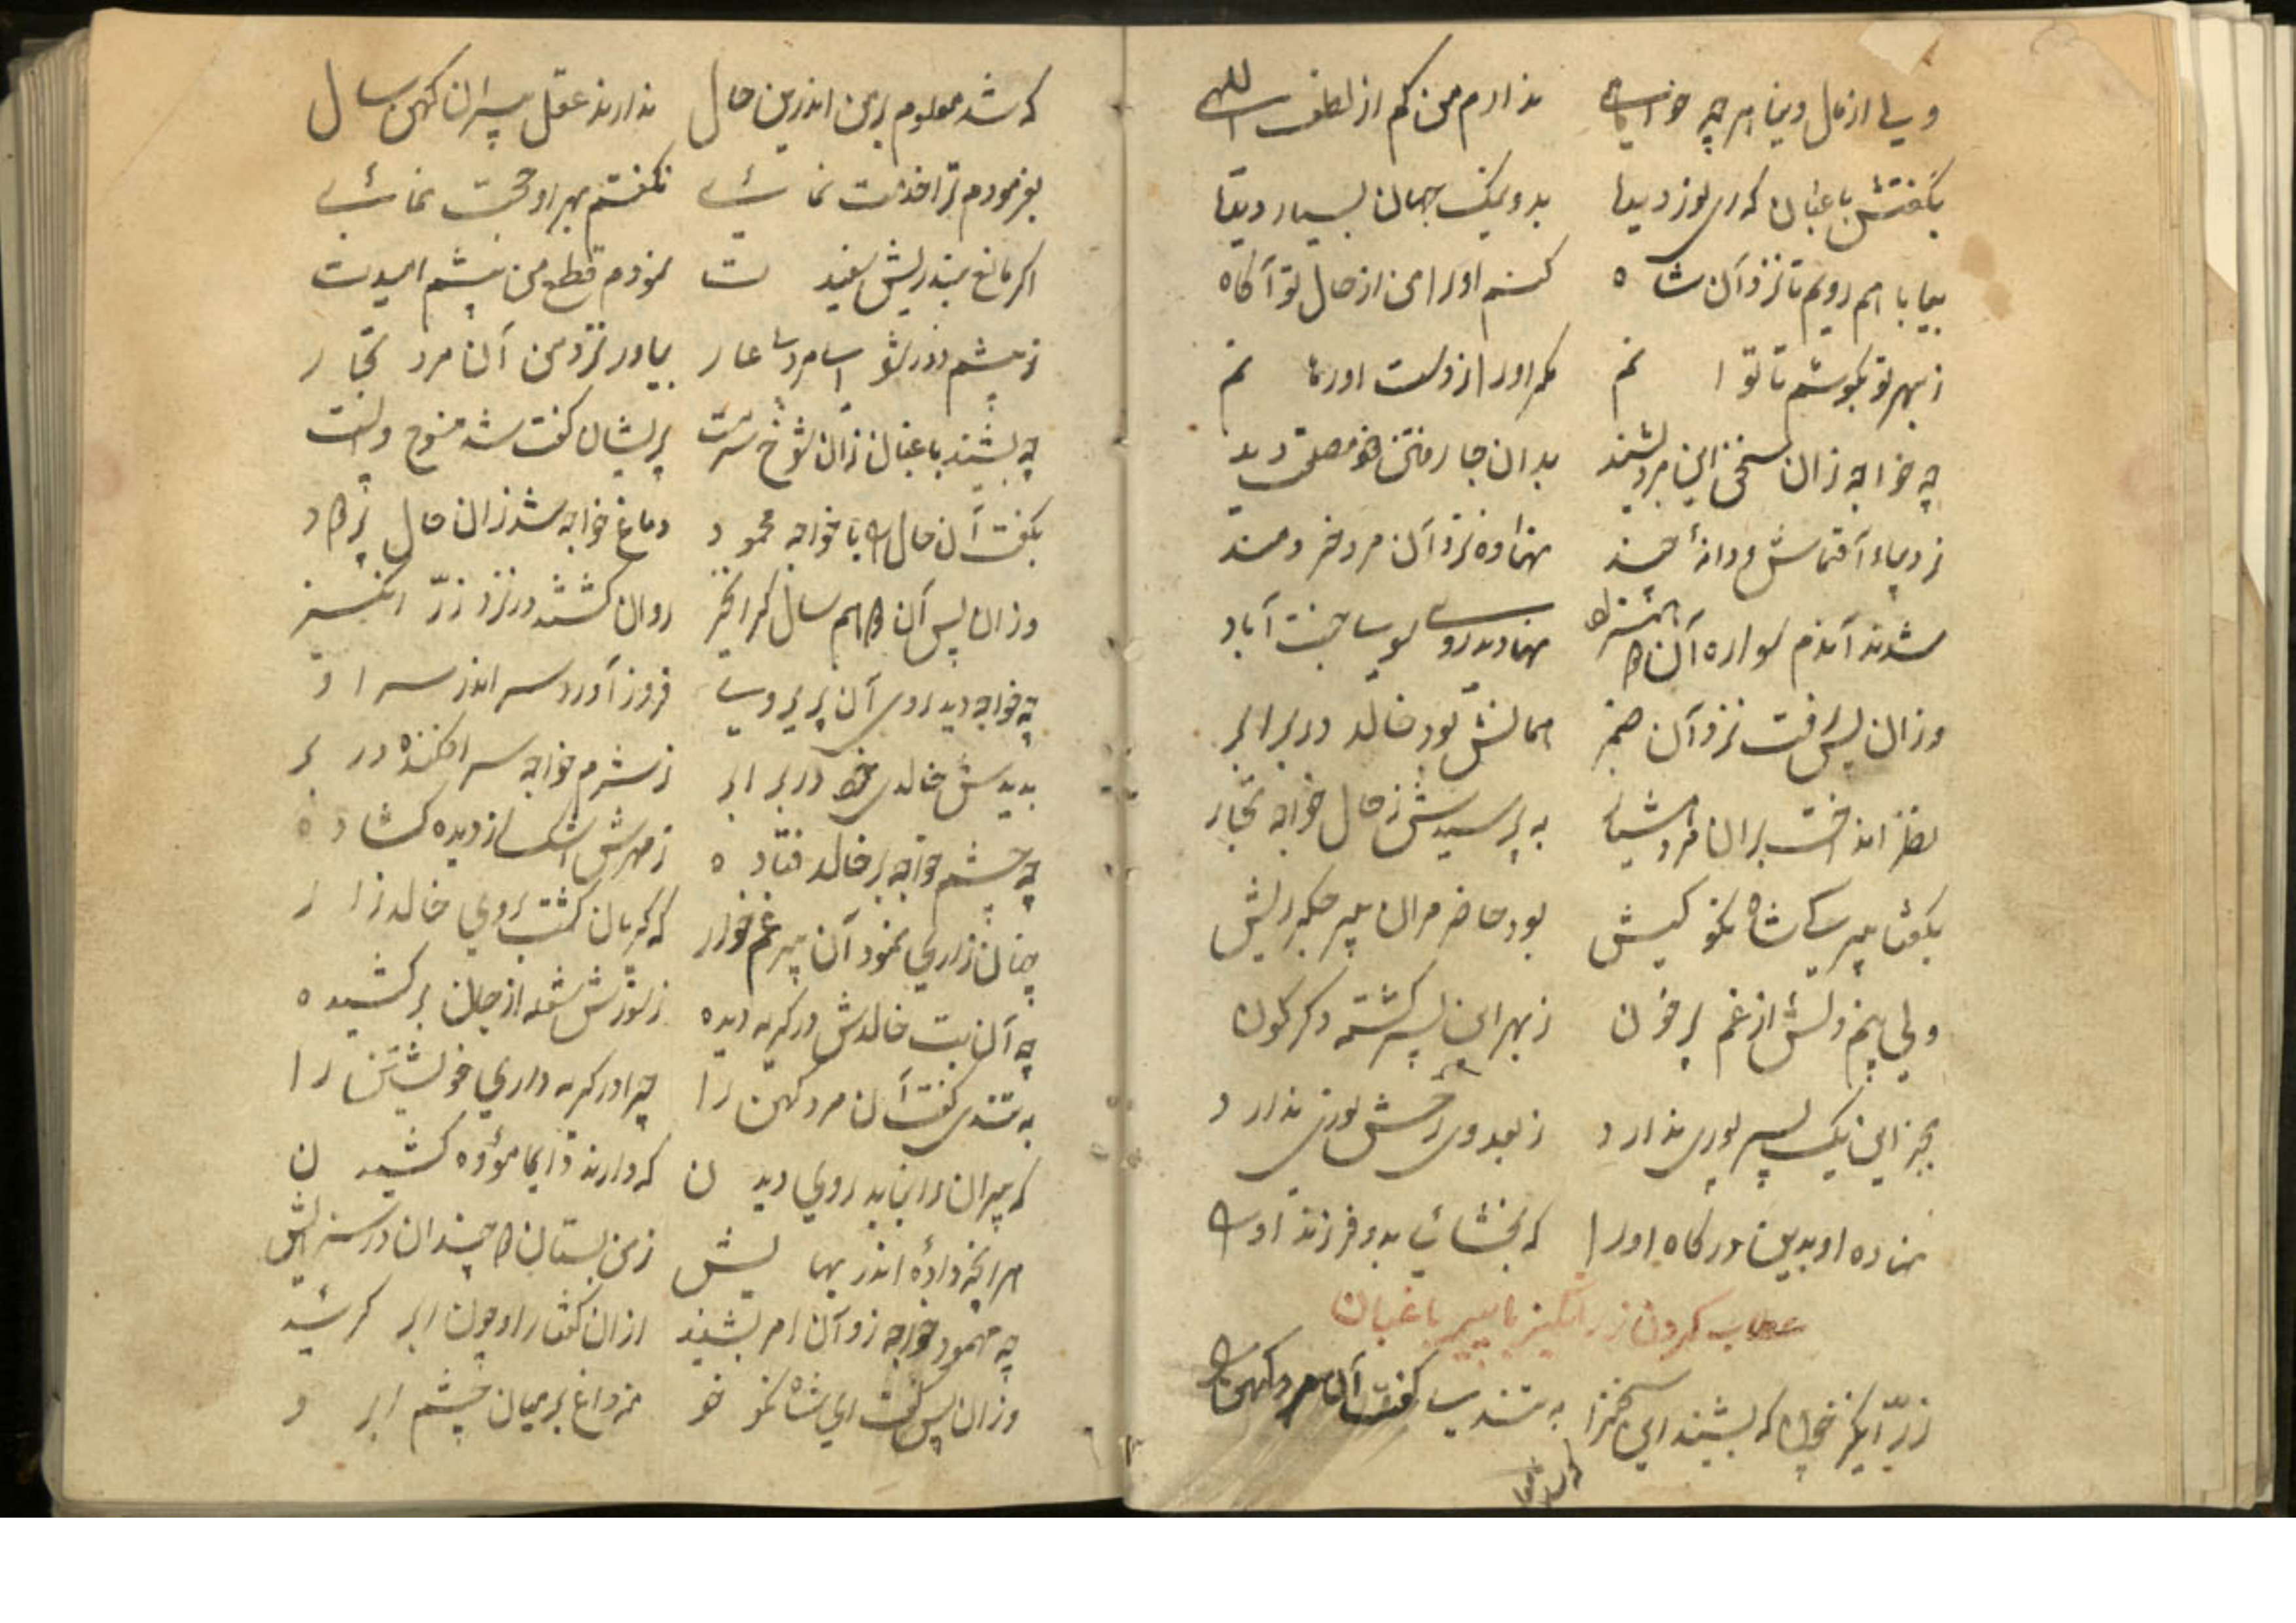 ولی از مال دنیا هر چه خواهی ندارم من کم از لطف الهی
بگفتش باغبان که ای نور دیدها بدو نیک جهان بسیار دیدها
بیا با هم رویم تا نزد آن شاه کنم او را من از حال تو آگاه
ز بهر تو بکوشم تا توانم مکر او را ز دست او رهانم
چه خواجه زان سخن این مرد بشنید بدان جا رفتن خود مصلحت دید
ز دیبا و آقماش و دانهٔ چند نهاده نزد آن مرد خردمند
شدند آندم سواره آن نهادند روی سوی جنت آباد
وزان پس رفت نزد آن صنم همانش بود خالد در برابر
نظر انداخت بران مرد به پرسیدش ز حال خواجه تجار
بگفتا پیر کی شاه نکو کیش بود حاضر مران پیر جگر ریش
ولی دلش از غم پر خون ز بهر این پسر گشته دگرگون
بجز این یک پسر پوری ندارد ز بعد وی نوری ندارد
نهاده او بدین درگاه او را که بخشائی بدو فرزند او را
عتاب کردن زر انگیز با پیر باغبان
زر انگیز چون که بشنید این سخن را به تندی گفت آن مرد کهن را
که شد معلوم بر من اندرین حال ندارند عقل پیران کهن سال
بفرمودم ترا خدمت نمائی نگفتم بهر او حجت نمائی
اگر مانع نبد ریش سفیدت نمودم قطع من پیشم امیدت
ز پیشم دور شو ای مرد عار بیاور نزد من آن مرد تجار
چه بشنید باغبان زان شوخ سرمست پریشان گفت شد
بگفت آن حال را با خواجه محمود دماغ خواجه شد زان حال پر دود
وزان پس آن هم سال روان گشتند در نزد زر انگیز
چه خواجه دید روی آن پریروی فرود آورد سر اندر سر او
بدیدش خالدی خود در برابر ز شرم خواجه سر افکنده در بر
چه چشم خواجه بر خالد فتاده ز مهرش اشک از دیده گشاده
چنان زاری نمود آن پیر غم خوار که گریان گشت بر وی خالد زار
چه آن بت خالدش در گریه دیده ز سوزش شعله از جان بر کشیده
به تندی گفت آن مرد کهن را چرا در گریه داری خویشتن را
که پیران را نباید روی دیدن که دارند دایما موده کشیدن
هر آنچه دادهٔ اندر بهایش ز من بستان دو چندان در سزایش
چه محمود خواجه زو آن امر بشنید ازان گفتار او چون ابر گرئید
وزان پس گفت ای شاه نکو خو منه داغ بر میان چشم ابرو